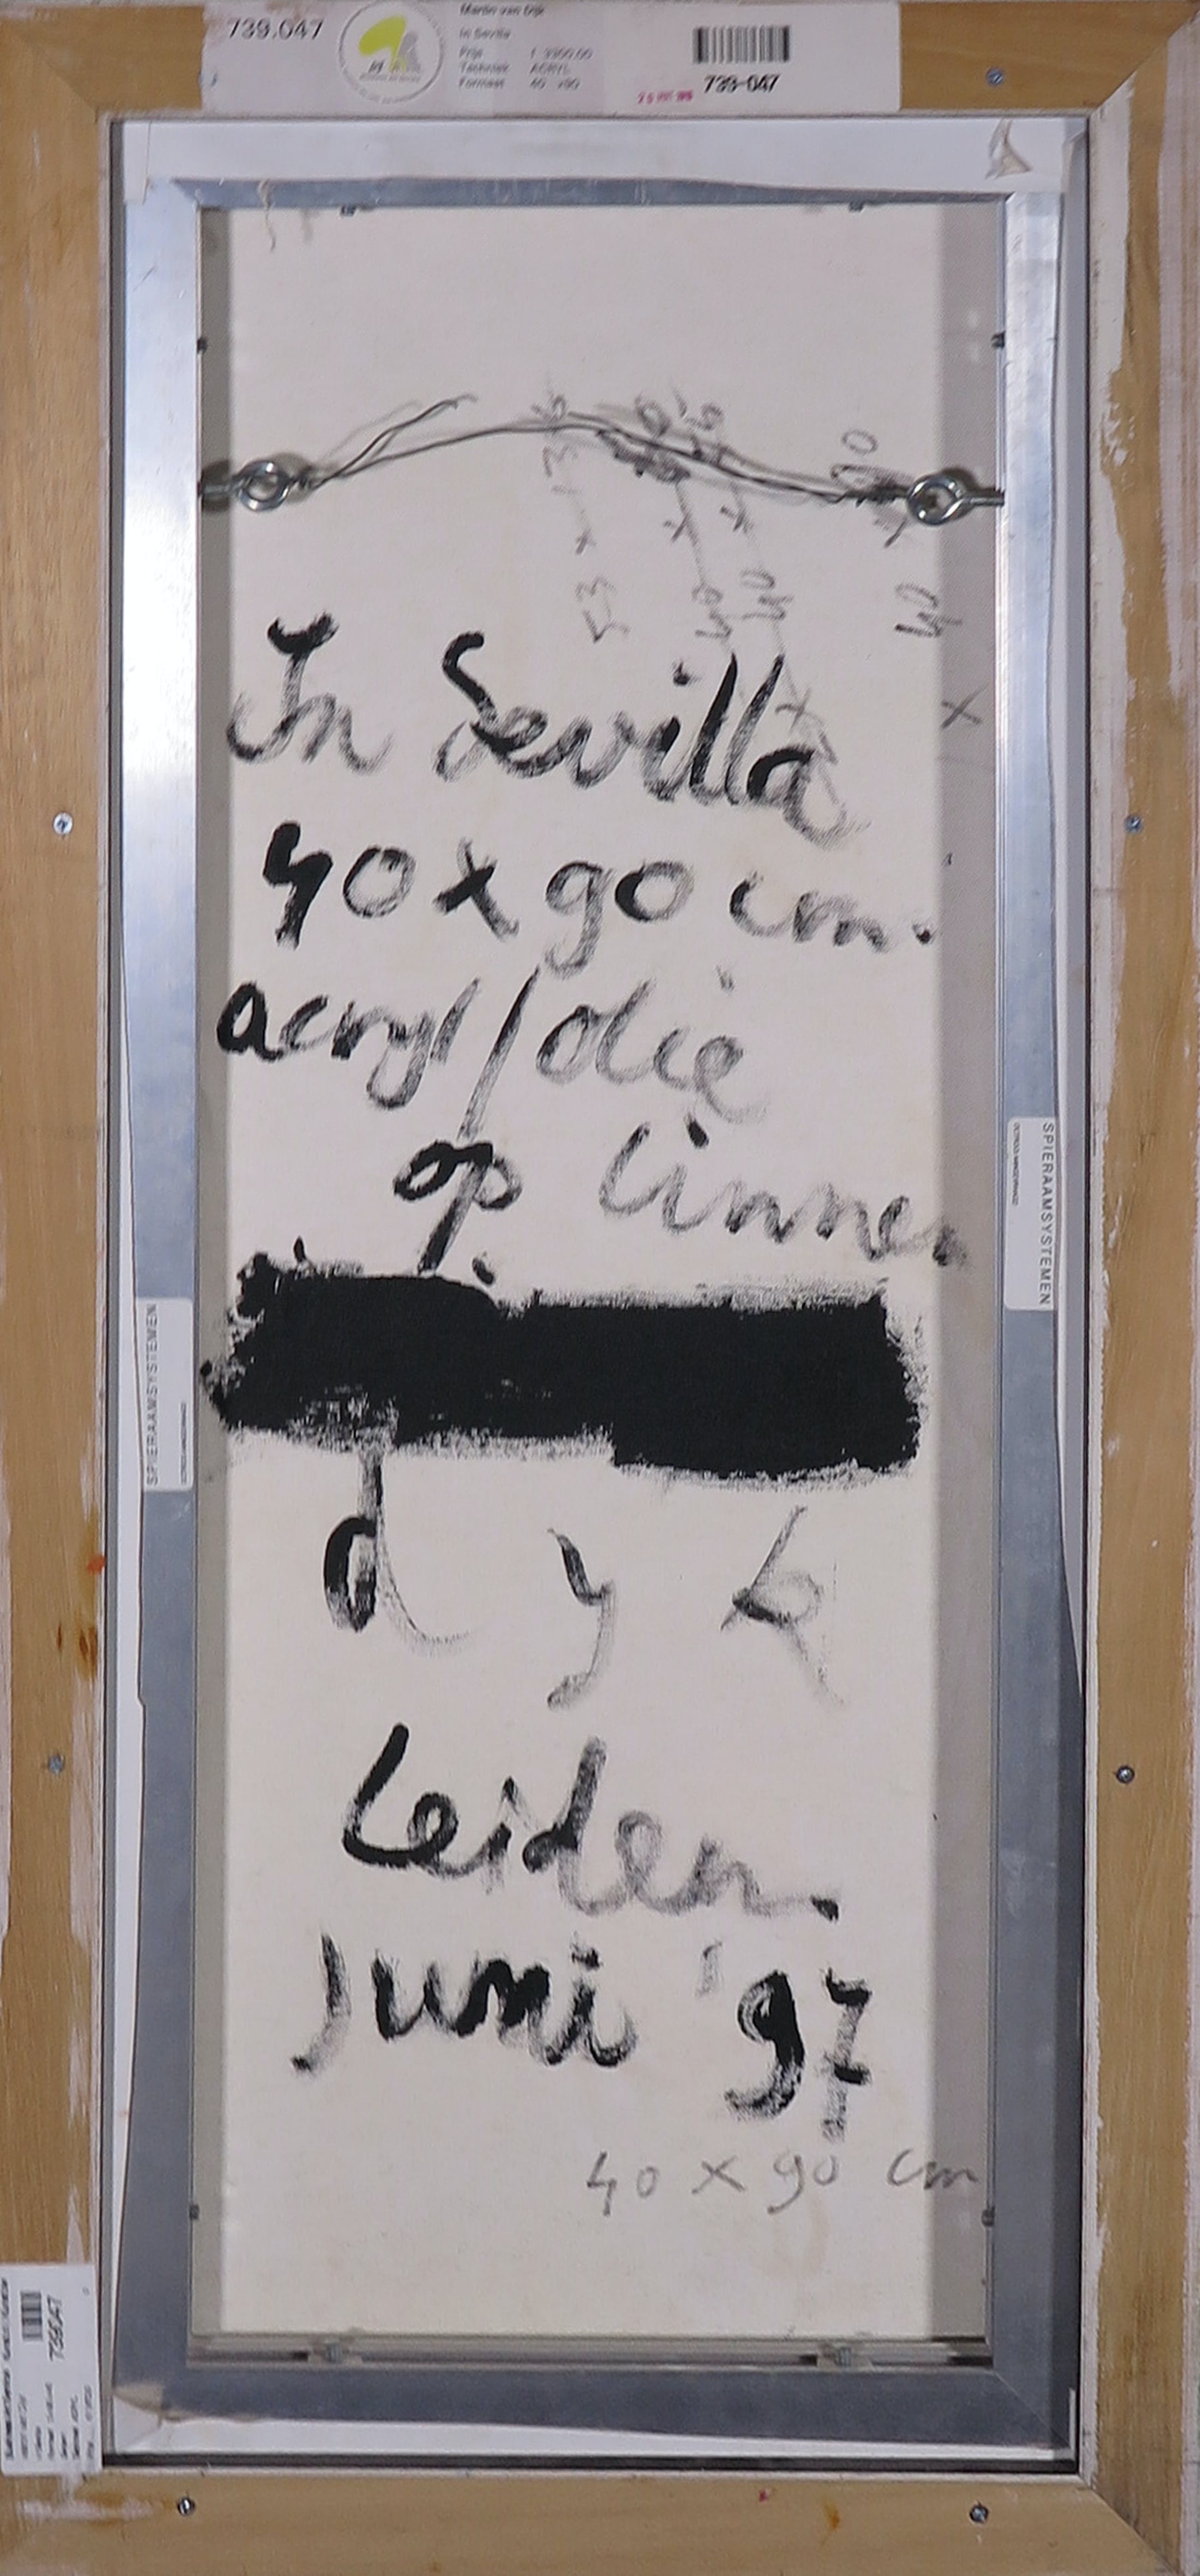 739.047
Martin van Dijk
In Sevilla
Prijs f 3300.00
Techniek ACRYL
Formaat 40 x90
739-047
53 x
40
x 40
In Sevilla
40 x 90 cm.
acryl/olie
op linnen
d y k
Leiden.
Juni '97
40 x 90 cm
SPIERAAMSYSTEMEN
SPIERAAMSYSTEMEN
739047